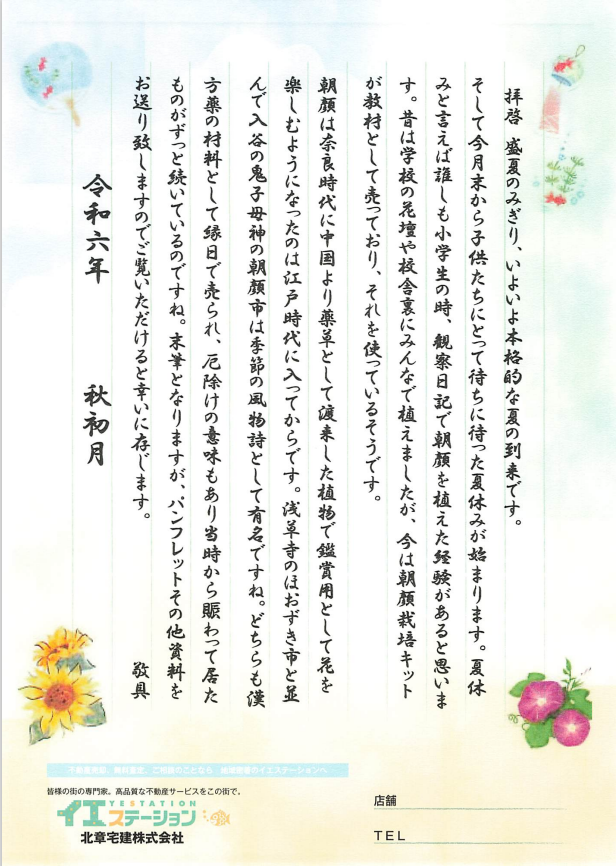 拝啓 盛夏のみぎり、いよいよ本格的な夏の到来です。
そして今月末から子供たちにとって待ちに待った夏休みが始まります。夏休
みと言えば誰しも小学生の時、観察日記で朝顔を植えた経験があると思いま
す。昔は学校の花壇や校舎裏にみんなで植えましたが、今は朝顔栽培キット
が教材として売っており、それを使っているそうです。
朝顔は奈良時代に中国より薬草として渡来した植物で鑑賞用として花を
楽しむようになったのは江戸時代に入ってからです。浅草寺のほおずき市と並
んで入谷の鬼子母神の朝顔市は季節の風物詩として有名ですね。どちらも漢
方薬の材料として縁日で売られ、厄除けの意味もあり当時から賑わって居た
ものがずっと続いているのですね。末筆となりますが、パンフレットその他資料を
お送り致しますのでご覧いただけると幸いに存じます。
敬具
令和六年 秋初月
不動産売却、無料査定、ご相談のことなら 地域密着のイエステーションへ
皆様の街の専門家。高品質な不動産サービスをこの街で。
YESTATION
イエステーション
北章宅建株式会社
店舗
TEL